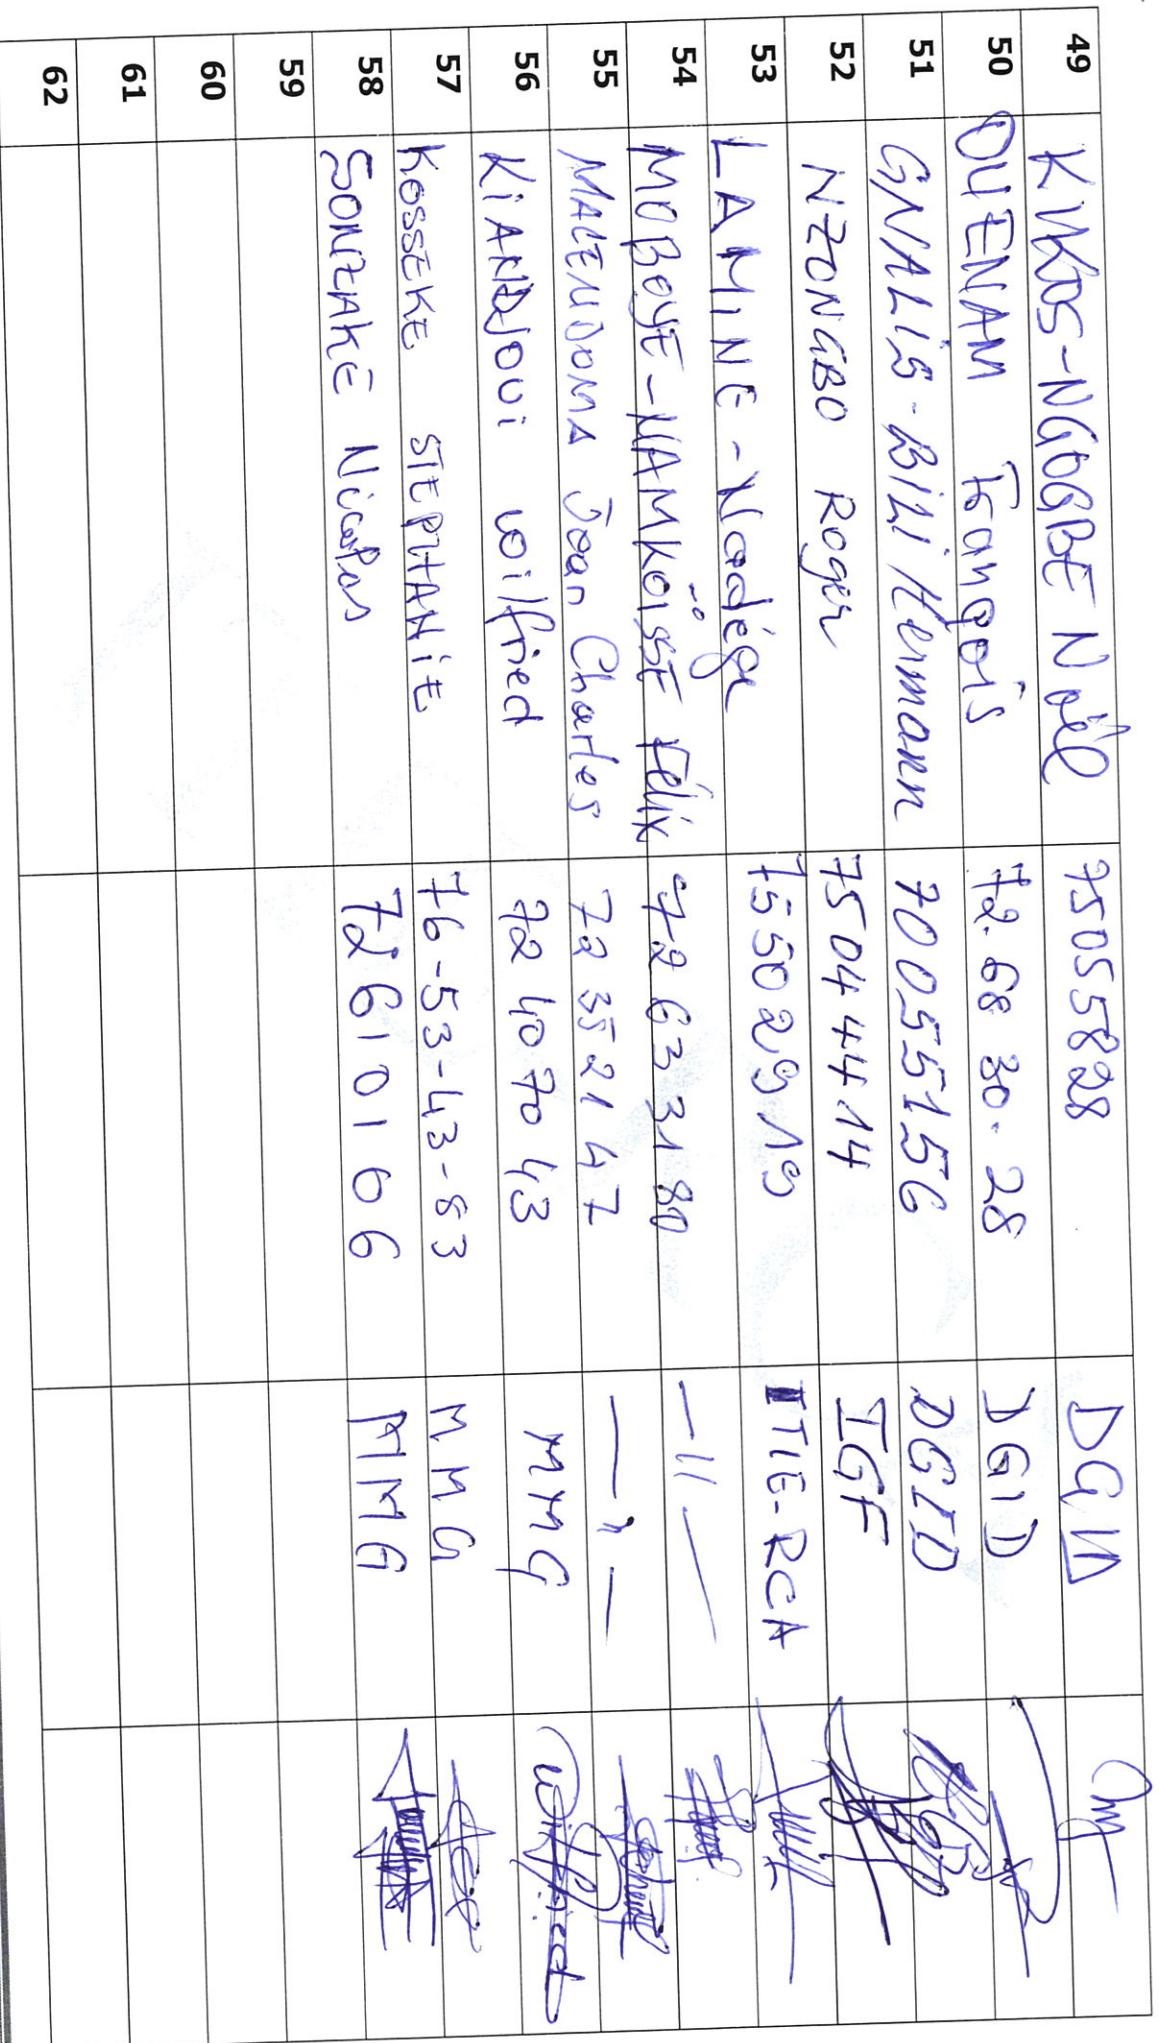 49 KIKOS-NGOGBE Noël 75055828 DGID
50 OUENAM François 72.68 30. 28 DGID
51 GNALIS-BILI Hermann 70055156 DGID
52 NZONGBO Roger 75044414 IGF
53 LAMINE-Nadége 75502919 ITIE-RCA
54 MOBOYE-NAMKOÏSSE Félix 72633180 —11—
55 Jean Charles 72352147 — " —
56 Wilfried 72 40 70 43 MMG Wilfried
57 KOSSEKE STEPHANIE 76-53-43-83 MMG
58 SONZAKE Nicolas 72610106 MMG
59
60
61
62